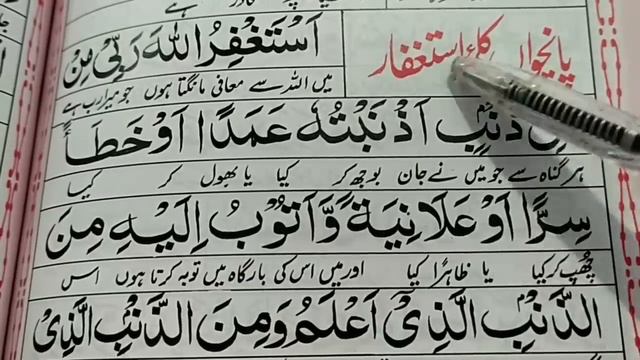 پانچواں کلمۂ استغفار
اَسْتَغْفِرُ اللهَ رَبِّیْ مِنْ
میں اللہ سے معافی مانگتا ہوں جو میرا رب ہے
ذَنْۢبٍ اَذْنَبْتُهٗ عَمَدًا اَوْ خَطَأً
ہر گناہ سے جو میں نے جان بوجھ کر کیا یا بھول کر کیا
سِرًّا اَوْ عَلَانِیَةً وَّاَتُوْبُ اِلَیْهِ مِنَ
چھپ کر کیا یا ظاہرًا کیا اور میں اس کی بارگاہ میں توبہ کرتا ہوں اس
الذَّنْۢبِ الَّذِیْۤ اَعْلَمُ وَمِنَ الذَّنْۢبِ الَّذِیْ